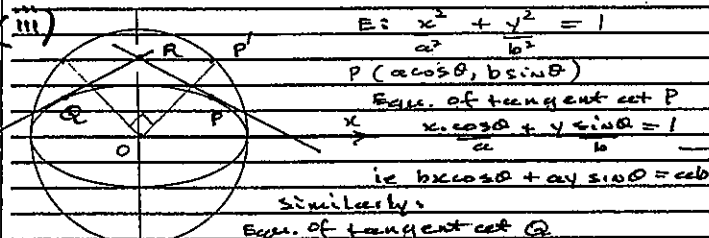 (iii)
E: x²/a² + y²/b² = 1
R P'
P (acosθ, bsinθ)
Q P
Equ. of tangent at P
x
O
x.cosθ/a + y sinθ/b = 1
ie bxcosθ + ay sinθ = ab
similarly:
Equ. of tangent at Q